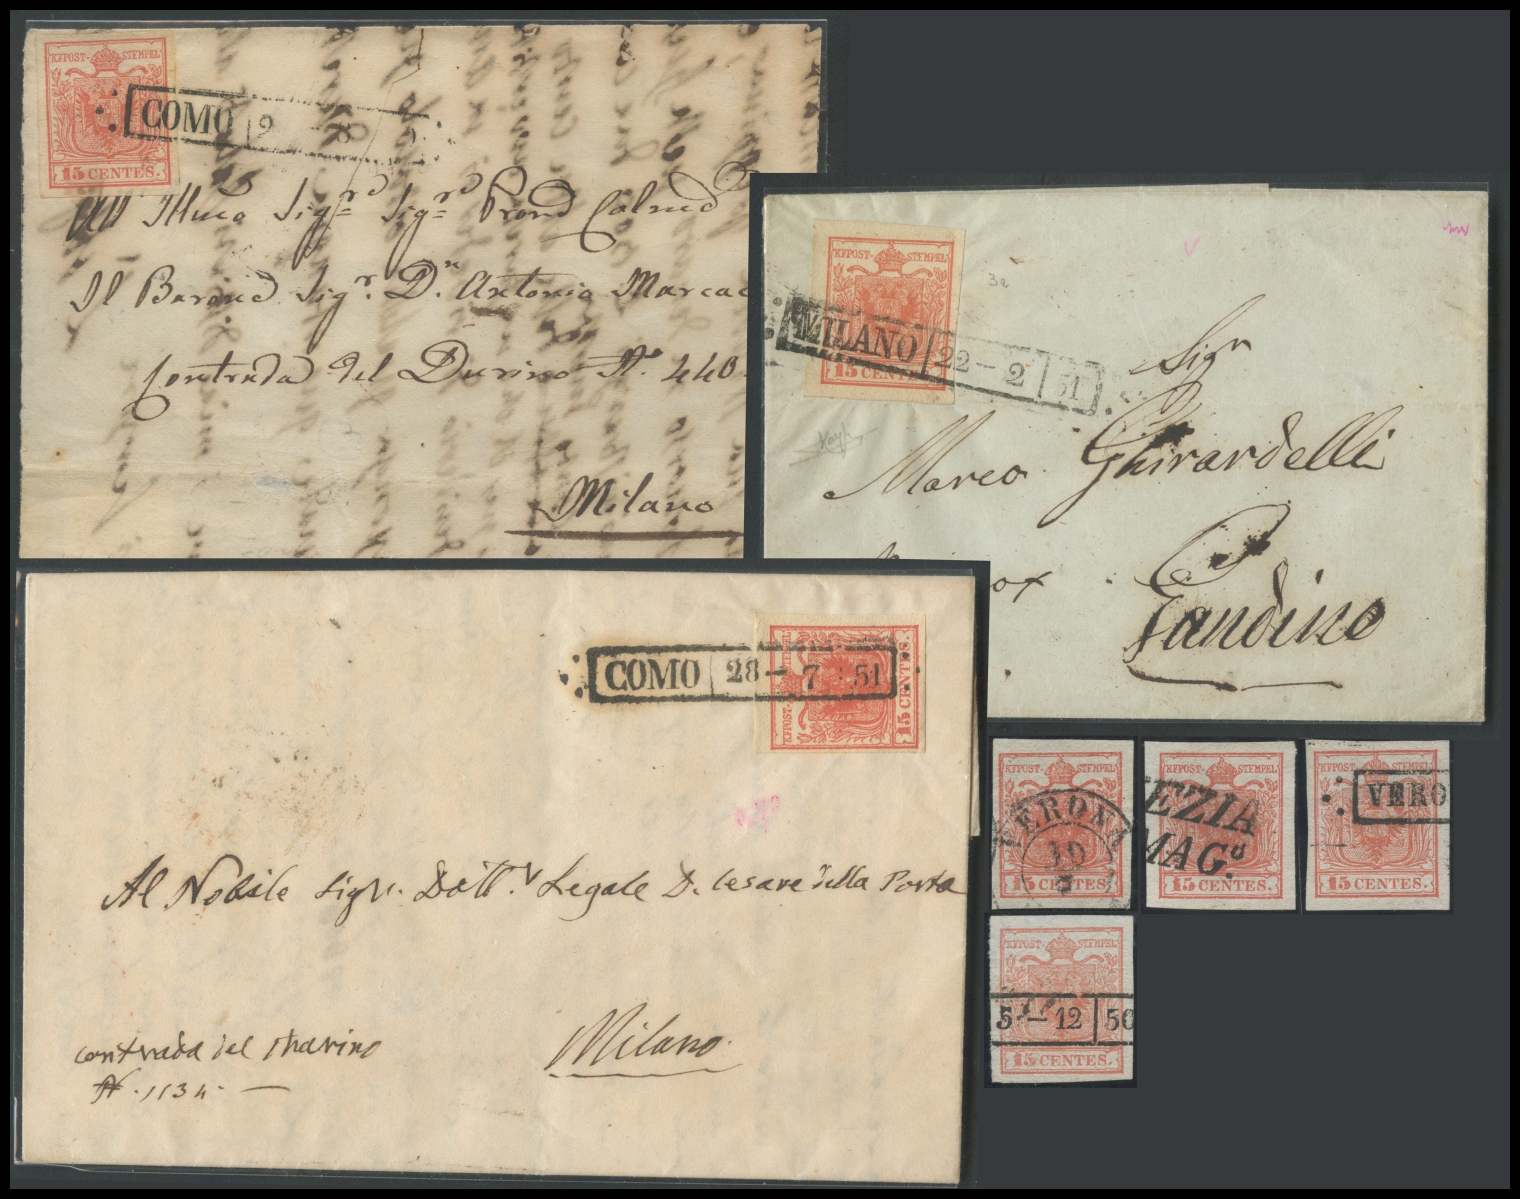 KKPOST-STEMPEL
15 CENTES.
COMO 2
All' Sigr. Sigr.
Il Barone Sigr. Dn. Antonio
Contrada del Durino No. 440
Milano
KKPOST-STEMPEL
15 CENTES.
MILANO 22-2 51
3a
Sigr
Marco Ghirardelli
Gandino
KKPOST-STEMPEL
15 CENTES.
COMO 28-7 51
Al Nobile Sigr. Dott. Legale D. Cesare della Porta
Milano
contrada del
N. 1134.
KKPOST-STEMPEL
VERONA
10
15 CENTES.
KKPOST-STEMPEL
EZIA
MAGo.
15 CENTES.
KKPOST-STEMPEL
VERO
15 CENTES.
KKPOST-STEMPEL
5-12 50
15 CENTES.